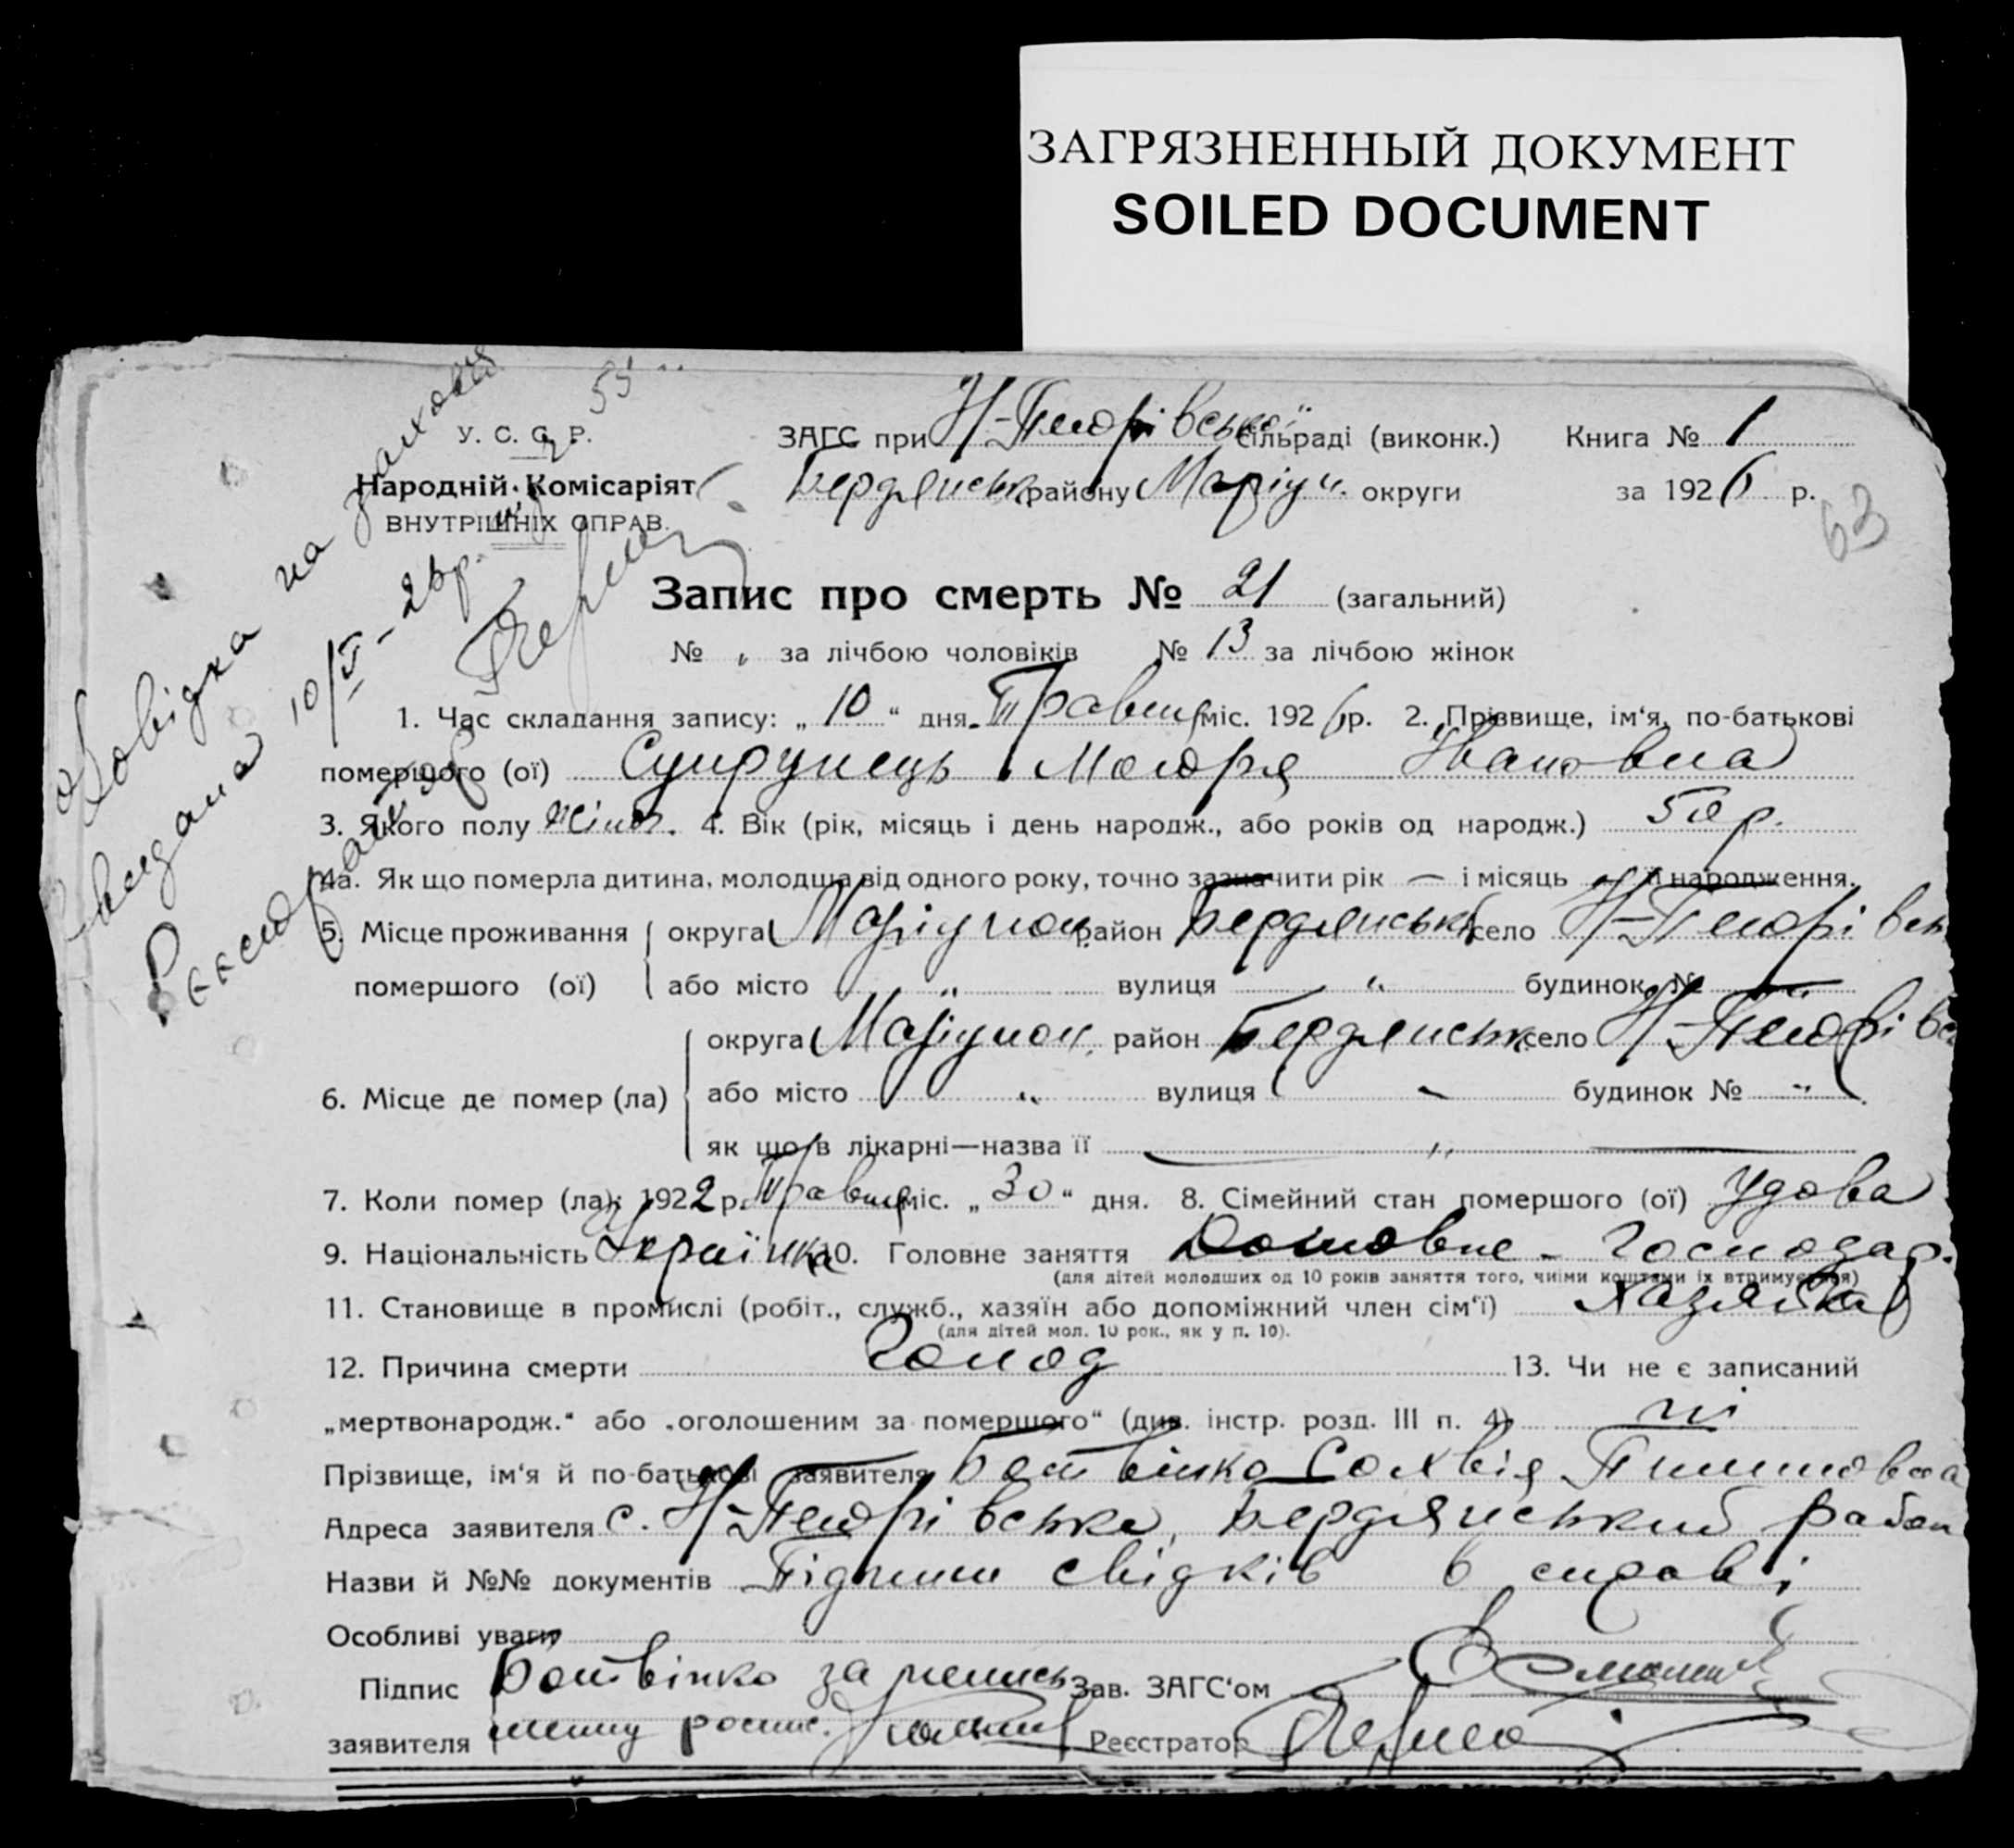 ЗАГРЯЗНЕННЫЙ ДОКУМЕНТ
SOILED DOCUMENT
У. С. С. Р.
Народній Комісаріят
ВНУТРІШНІХ СПРАВ.
ЗАГС при Н-Петрівській сільраді (виконк.) Книга № 1
Бердянськ району Маріуп. округи за 1926 р.
63
Довідка на
видана 10/V-26р.
Реєстратор
Запис про смерть № 21 (загальний)
№ „ за лічбою чоловіків № 13 за лічбою жінок
1. Час складання запису: „ 10 “ дня Травня міс. 1926 р. 2. Прізвище, ім‘я, по-батькові
померщого (ої) Супрунець Мотря Івановна
3. Якого полу жіноч. 4. Вік (рік, місяць і день народж., або років од народж.) 50 р.
4а. Як що померла дитина, молодща від одного року, точно зазначити рік — і місяць — її народження.
5. Місце проживання округа Маріупол. район Бердянськ село Н-Петрівськ
померщого (ої) або місто „ вулиця „ будинок № „
округа Маріупол. район Бердянськ село Н-Петрівсь
6. Місце де помер (ла) або місто „ вулиця „ будинок № „
як що в лікарні—назва її „
7. Коли помер (ла): 1922 р. Травня міс. „ 30 “ дня. 8. Сімейний стан померщого (ої) Удова
9. Національність Українка 10. Головне заняття Домовне - Господар.
(для дітей молодших од 10 років заняття того, чиїми коштами їх втримується)
11. Становище в промислі (робіт., служб., хазяїн або допоміжний член сім‘ї) Хазяйка
(для дітей мол. 10 рок., як у п. 10).
12. Причина смерти Голод 13. Чи не є записаний
„мертвонародж.“ або „оголошеним за померщого“ (див. інстр. розд. III п. 4) ні
Прізвище, ім‘я й по-батькові заявителя Ботвінко Солхвія
Адреса заявителя с. Н-Петрівське, Бердянський район
Назви й №№ документів Підписи свідків в справі
Особливі уваги
Підпис Ботвінко за Зав. ЗАГС‘ом
заявителя роспис. Реєстратор